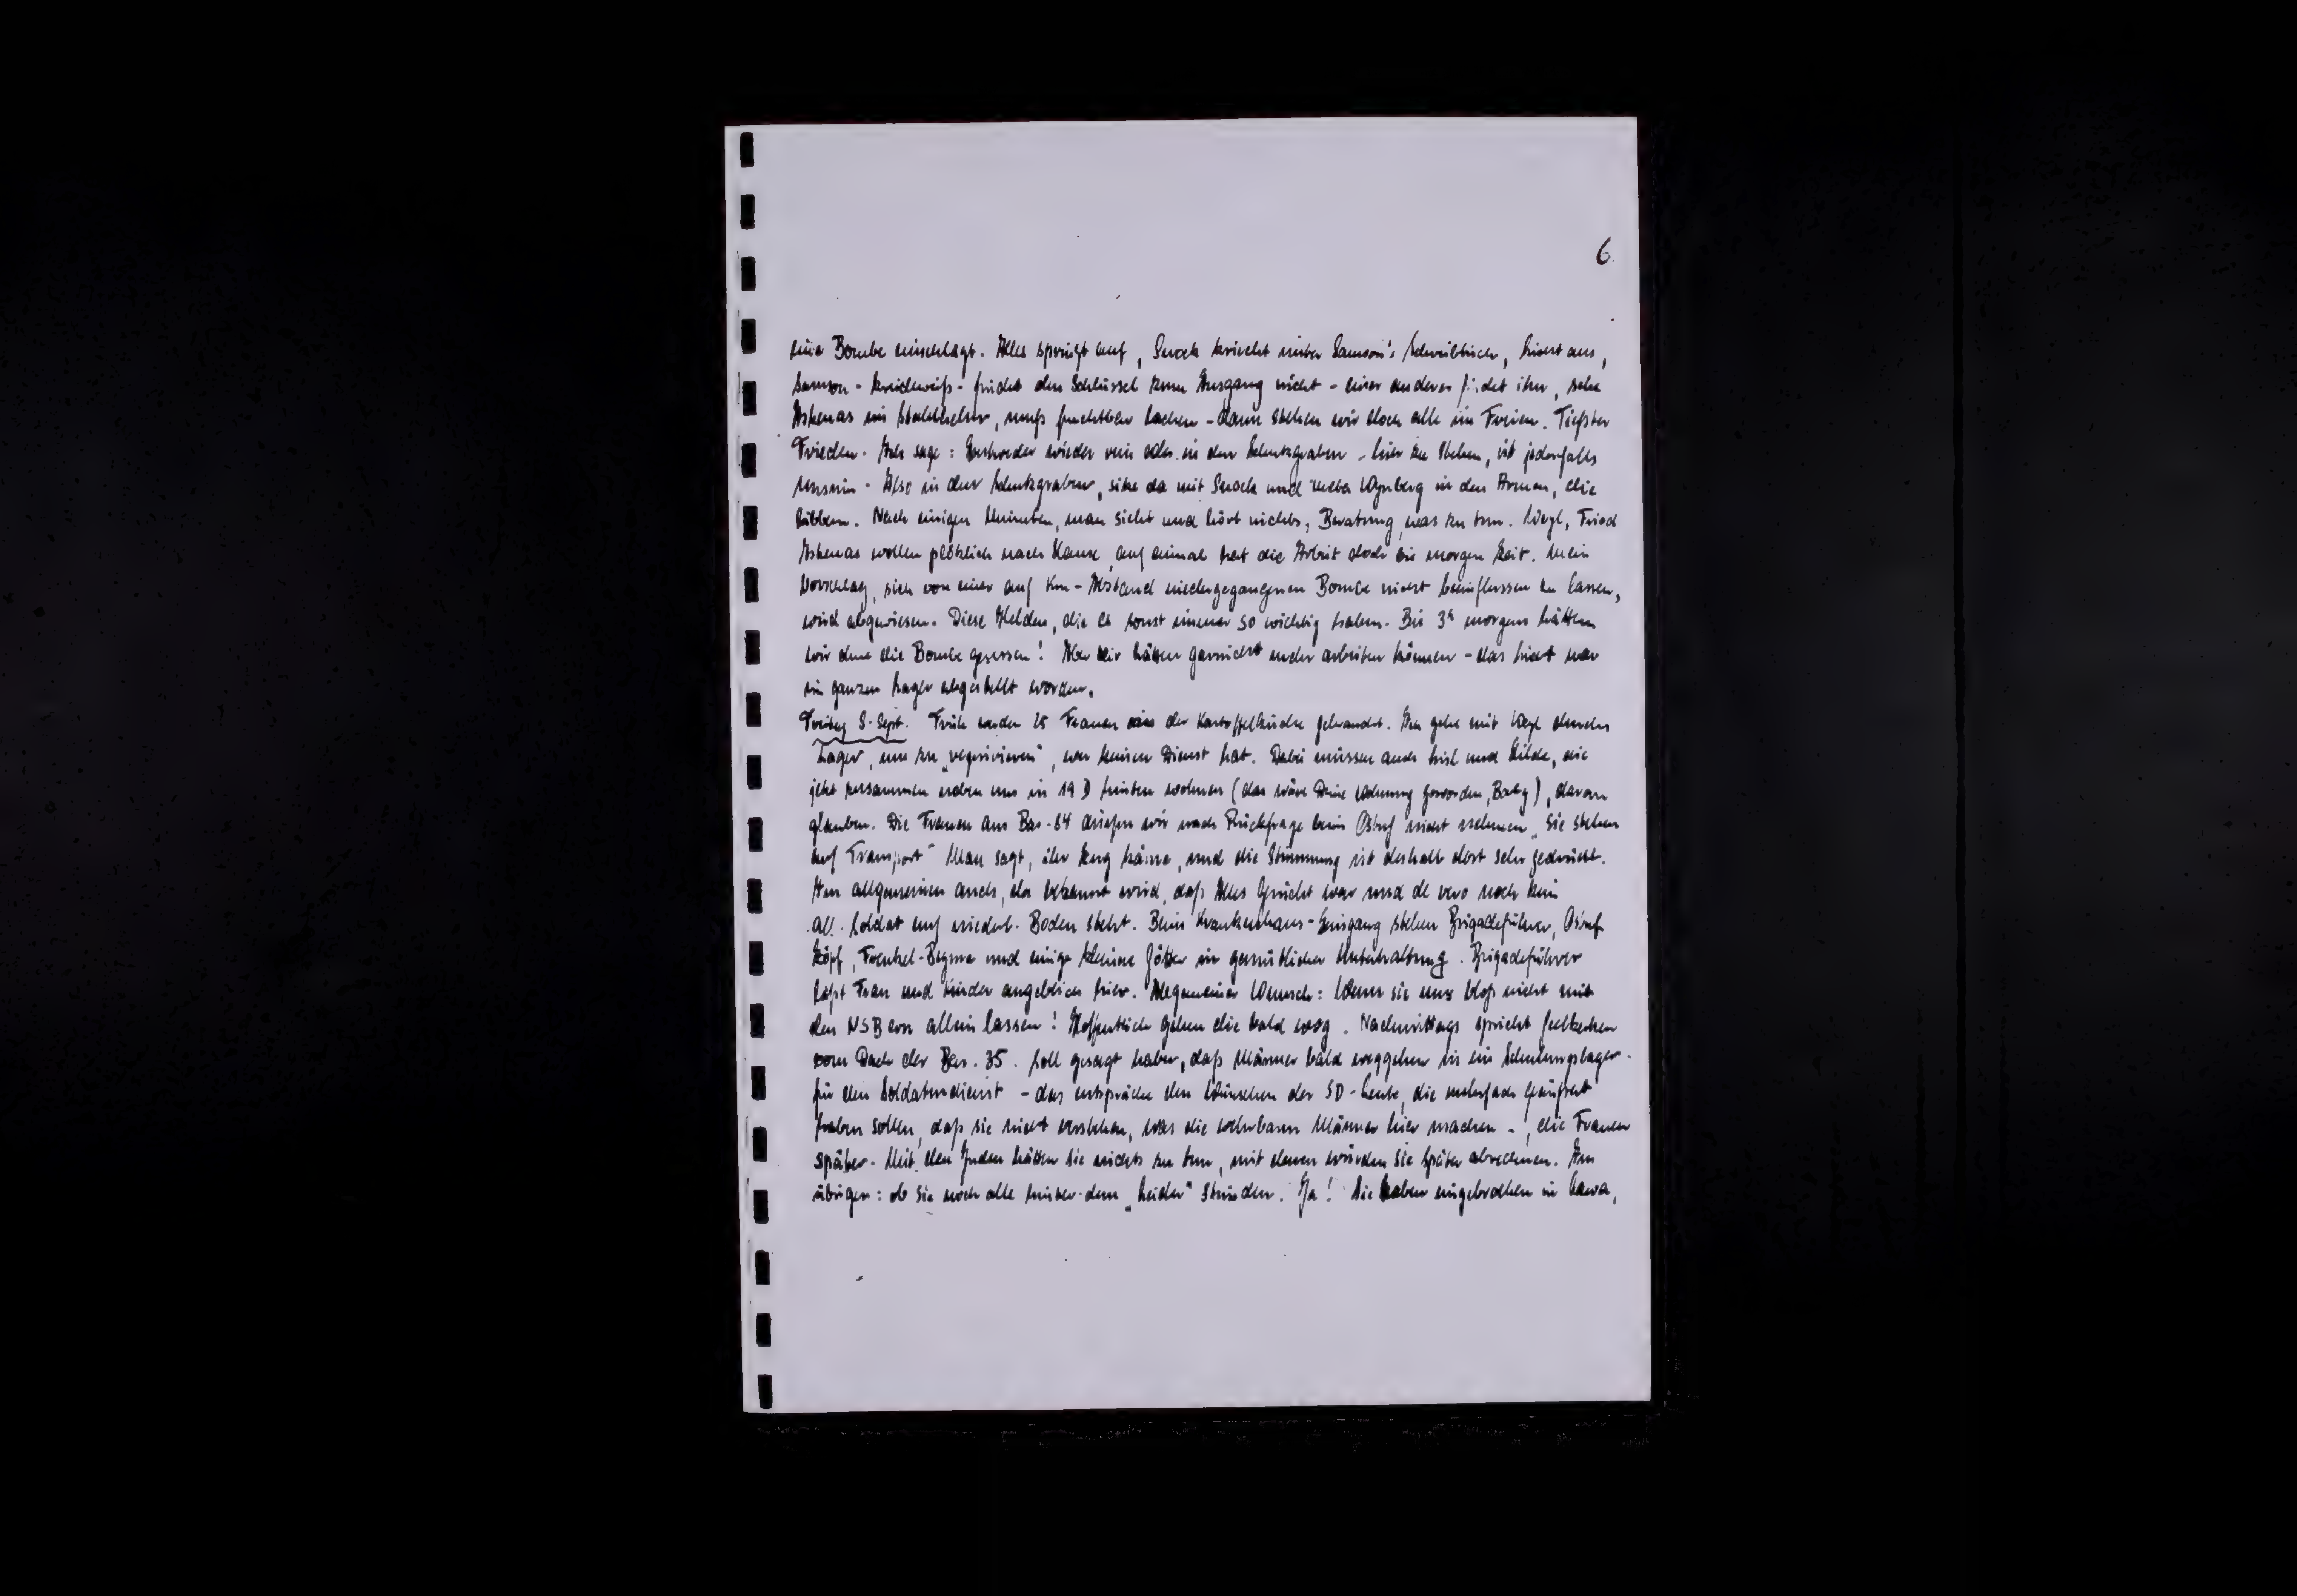 6.
eine Bombe einschlägt. Alles springt auf, Snoek kriecht unter Samson's Schreibtisch, Licht aus,
Samson - kreideweiss - findet den Schlüssel zum Ausgang nicht - einer anderer findet ihn, sehe
Askenas im Stahlhelm, muss furchtbar lachen - dann stehen wir doch alle im Freien. Tiefster
Frieden. Ich sage: Entweder wieder rein oder in den Schutzgraben - hier zu stehen, ist jedenfalls
Unsinn. Also in den Schutzgraben, sitze da mit Snoek und Wynberg in den Armen, die
bibbern. Nach einigen Minuten, man sieht und hört nichts, Beratung, was zu tun. Weyl, Fried
Askenas wollen plötzlich nach Hause, auf einmal hat die Arbeit doch bis morgen Zeit. Mein
Vorschlag, sich von einer auf Km-Abstand niedergegangenen Bombe nicht beeinflussen zu lassen,
wird abgewiesen. Diese Helden, die es sonst immer so wichtig haben. Bis 3h morgens hätten
wir ohne die Bombe gesessen! Aber wir hätten garnicht mehr arbeiten können - das Licht war
im ganzen Lager abgestellt worden.
Freitag 8. Sept. Früh werden 25 Frauen aus der Kartoffelküche gebraucht. Ich gehe mit Weyl durchs
Lager, um zu „requirieren", wer keinen Dienst hat. Dabei müssen auch Lisl und Hilde, die
jetzt zusammen neben uns in 19 D hinten wohnen (das wäre Deine Wohnung geworden, Baby), daran
glauben. Die Frauen aus Bar. 64 dürfen wir nach Rückfrage beim Ostuf nicht nehmen „Sie stehen
auf Transport" Man sagt, ihr Zug käme, und die Stimmung ist deshalb dort sehr gedrückt.
Im allgemeinen auch, da bekannt wird, dass Alles Gerücht war und de vero noch kein
All. Soldat auf niederl. Boden steht. Beim Krankenhaus-Eingang stehen Brigadeführer, Ostuf
Höpf, Frenkel-Begma und einige kleine Götter in gemütlicher Unterhaltung. Brigadeführer
lässt Frau und Kinder angeblich hier. Allgemeiner Wunsch: Wenn sie uns bloss nicht mit
den NSBern allein lassen! Hoffentlich gehen die bald weg. Nachmittags spricht
vom Dach der Bar. 35. Soll gesagt haben, dass Männer bald weggehen in ein Schulungslager
für den Soldatendienst - das entspräche den Wünschen der SD-Leute, die mehrfach geäussert
haben sollen, dass sie nicht verstehen, was die wehrbaren Männer hier machen -, die Frauen
später. Mit den Juden hätten sie nichts zu tun, mit denen würden sie später abrechnen. Im
übrigen: ob sie noch alle hinter dem „Leider" stünden. Ja! Sie haben eingebrochen in Lawa,